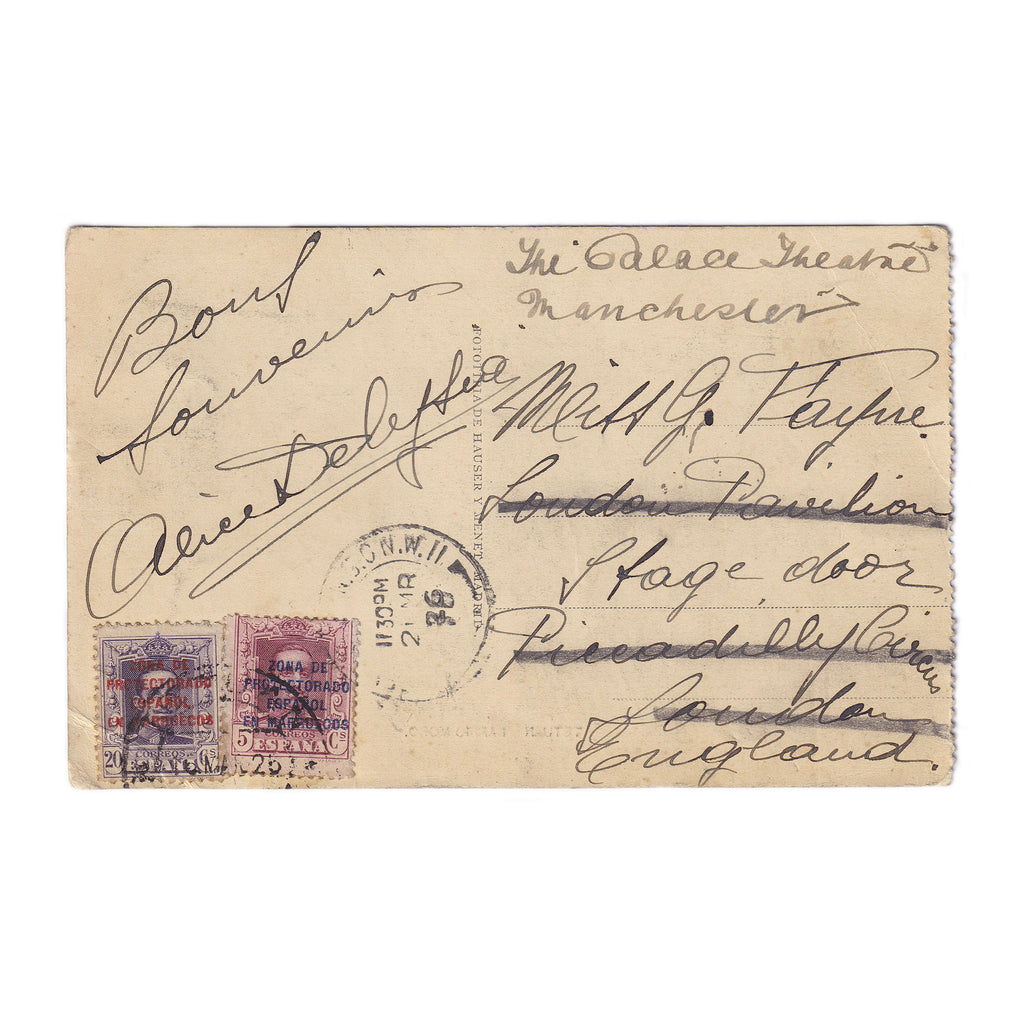 Bons
Souvenirs
Alice Delysia
The Palace Theatre
Manchester
Miss G. Fayne
London Pavilion
Stage door
Piccadilly Circus
London
England.
FOTOTIPIA DE HAUSER Y MENET.-MADRID
N.W.11
11 30 PM
MR
26
ZONA DE
PROTECTORADO
ESPAÑOL
EN MARRUECOS
CORREOS
20 ESPAÑA Cs
ZONA DE
PROTECTORADO
ESPAÑOL
EN MARRUECOS
CORREOS
5 ESPAÑA Cs